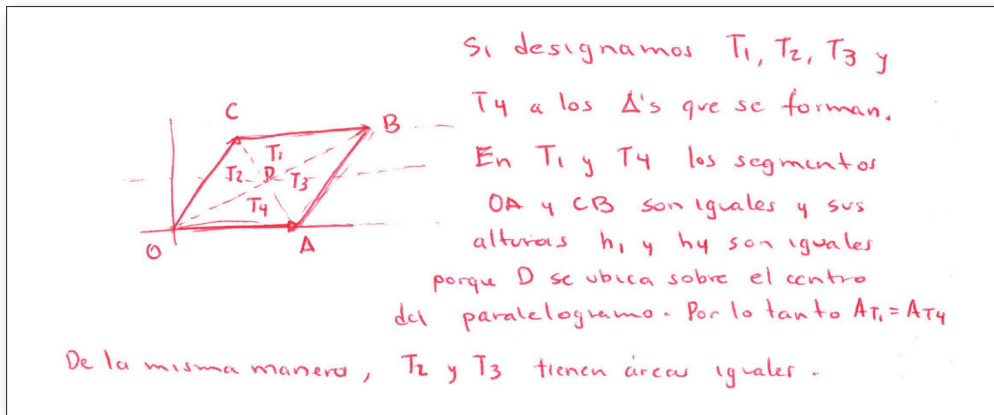 Si designamos T1, T2, T3 y
T4 a los Δ's que se forman.
En T1 y T4 los segmentos
OA y CB son iguales y sus
alturas h1 y h4 son iguales
porque D se ubica sobre el centro
del paralelogramo. Por lo tanto AT1 = AT4
De la misma manera, T2 y T3 tienen áreas iguales.
C
B
T1
T2
D
T3
T4
O
A